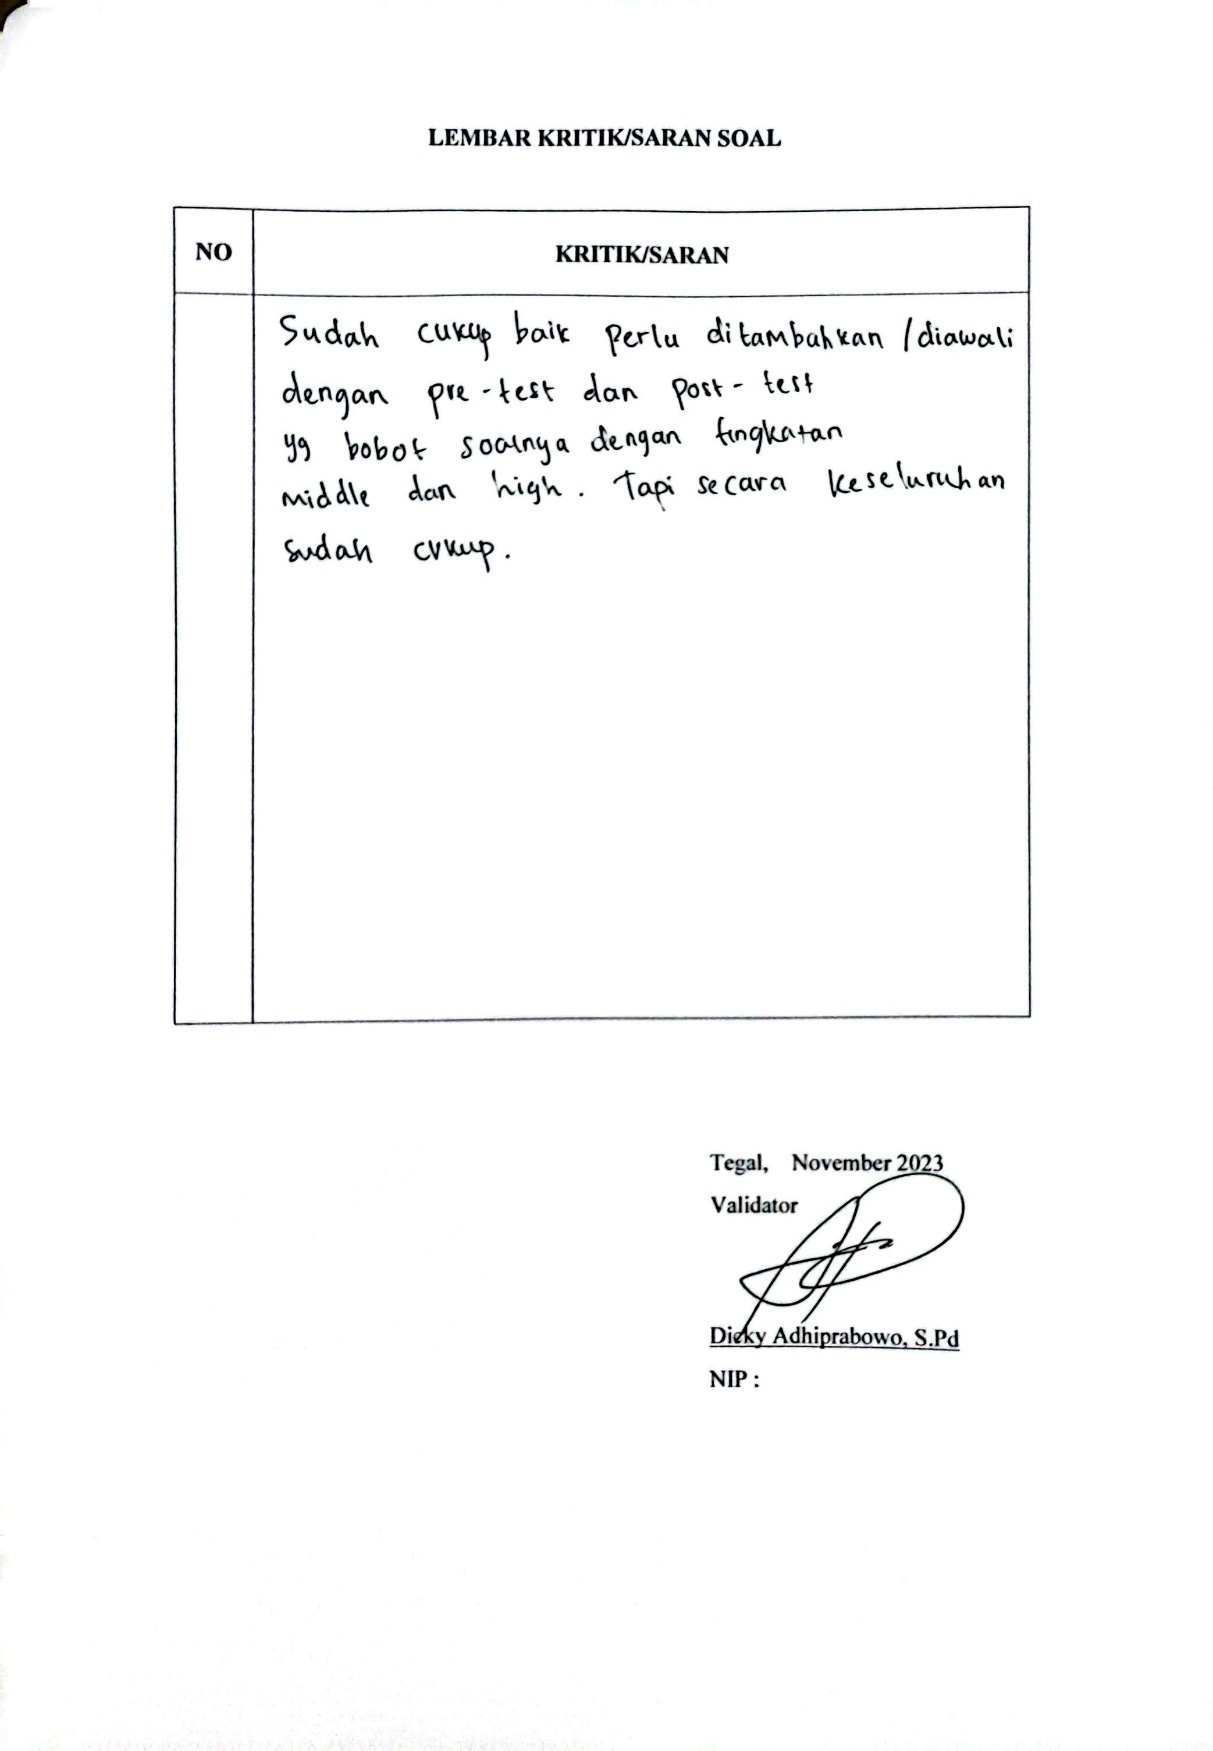 LEMBAR KRITIK/SARAN SOAL
NO
KRITIK/SARAN
Sudah cukup baik perlu ditambahkan /diawali
dengan pre-test dan post-test
yg bobot soalnya dengan tingkatan
middle dan high. Tapi secara keseluruhan
sudah cukup.
Tegal, November 2023
Validator
Dicky Adhiprabowo, S.Pd
NIP :